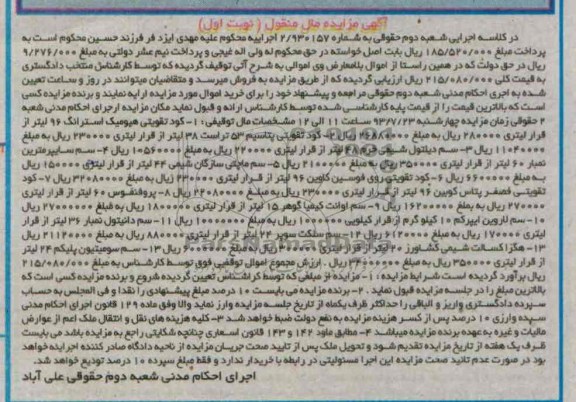 آگهی مزایده مال منقول ( نوبت اول)
در کلاسه اجرایی شعبه دوم حقوقی به شماره ۲/۹۳۰۱۵۷ اجراییه محکوم علیه مهدی ایزد فر فرزند حسین محکوم است به
پرداخت مبلغ ۱۸۵/۵۲۰/۰۰۰ ریال بابت اصل خواسته در حق محکوم له ولی اله غیجی و پرداخت نیم عشر دولتی به مبلغ ۹/۲۷۶/۰۰۰
ریال در حق دولت که در همین راستا از اموال بلامعارض وی اموالی به شرح آتی توقیف گردیده که توسط کارشناس منتخب دادگستری
به قیمت کلی ۲۱۵/۰۸۰/۰۰۰ ریال ارزیابی گردیده که از طریق مزایده به فروش میرسد و متقاضیان میتوانند در روز و ساعت تعیین
شده به اجری احکام مدنی شعبه دوم حقوقی مراجعه و پیشنهاد خود را برای خرید اموال مورد مزایده ارایه نمایند و برنده مزایده کسی
است که بالاترین قیمت را از قیمت پایه کارشناسی شده توسط کارشناس ارائه و قبول نماید مکان مزایده اجرای احکام مدنی شعبه
۲ حقوقی زمان مزایده چهارشنبه ۹۳/۷/۲۳ ساعت ۱۱ الی ۱۲ مشخصات مال توقیفی : ۱- کود تقویتی هیومیک استرانگ ۹۶ لیتر از
قرار لیتری ۲۸۰۰۰۰ ریال به مبلغ ریال ۲- کود تقویتی پتاسیم ۵۳ تراست ۳۸ لیتر از قرار لیتری ۲۳۰۰۰۰ ریال به مبلغ
۱۱۰۴۰۰۰۰ ریال ۳- سم دیلتول شیمی لیتر از قرار لیتری ۲۲۰۰۰۰ ریال به مبلغ ۱۰۵۶۰۰۰۰ ریال ۴- سم سایپرمترین
نمبار ۶۰ لیتر از قرار لیتری ۳۵۰۰۰۰ ریال به مبلغ ۲۱۰۰۰۰۰۰ ریال ۵- سم ماچتی سازگان شیمی ۴۴ لیتر از قرار لیتری ۱۵۰۰۰۰ ریال
به مبلغ ۶۶۰۰۰۰۰ ریال ۶- کود تقویتی روی فوسین کاوین ۹۶ لیتر از قرار لیتری ۲۳۰۰۰۰ ریال به مبلغ ۲۲۰۸۰۰۰۰ ریال ۷- کود
تقویتی فسفر پتاس کوبین ۹۶ لیتر از قرار لیتری ۲۳۰۰۰۰ ریال به مبلغ ۲۲۰۸۰۰۰۰ ریال ۸- پروفنفوس ۶۰ لیتر از قرار لیتری
۲۷۰۰۰۰ ریال به مبلغ ۱۶۲۰۰۰۰۰ ریال ۹- سم اوانت کیمیا گوهر ۱۵ لیتر از قرار لیتری ۱۸۰۰۰۰۰ ریال به مبلغ ۲۷۰۰۰۰۰۰ ریال
۱۰- سم لاروین ایپرکم ۱۰ کیلو گرم از قرار کیلویی ۱۰۰۰۰۰۰ ریال به مبلغ ۱۰۰۰۰۰۰۰ ریال ۱۱- سم دانیتول نمبار ۳۶ لیتر از قرار
لیتری ۱۷۰۰۰۰ ریال به مبلغ ۶۱۲۰۰۰۰ ریال ۱۲- سم سلکت سوپر ۲۴ لیتر از قرار لیتری ۸۸۰۰۰۰ ریال به مبلغ ۲۱۱۲۰۰۰۰ ریال
۱۳- هگزاکسالت شیمی کشاورز لیتر از قرار لیتری ریال به مبلغ ریال ۱۳- سم سومیتیون پلیکم ۲۴ لیتر
از قرار لیتری ۳۵۰۰۰۰ ریال به مبلغ ریال . ارزش مجموع اموال توقیفی فوق توسط کارشناس به مبلغ ۲۱۵/۰۸۰/۰۰۰
ریال برآورد گردیده است شرایط مزایده : ۱- مزایده از مبلغی که توسط کراشناس تعیین گردیده شروع و برنده مزایده کسی است که
بالاترین مبلغ را در جلسه مزایده قبول نماید . ۲- برنده مزایده می بایست ۱۰ درصد مبلغ پیشنهادی را نقدا و فی المجلس به حساب
سپرده دادگستری واریز و الباقی را حداکثر ظرف یکماه از تاریخ جلسه مزایده وارز نماید والا وفق ماده ۱۲۹ قانون اجرای احکام مدنی
سپده وارزی ۱۰ درصد پس از کسر هزینه مزایده به نفع دولت ضبط خواهد شد ۳- کلیه هزینه های نقل و انتقال ملک اعم از عوارض
مالیات و غیره به عهده برنده مزایده میباشد ۴- مطابق ماود ۱۴۲ و ۱۴۳ قانون اسعاری چنانچه شکایتی راجع به مزایده باشد می بایست
ظرف یک هفته از تاریخ مزایده تقدیم شود و تحویل ملک پس از تایید صحت جریان مزایده از ناحیه دادگاه صادر کننده اجراییه خواهد
بود در صورت عدم تائید صحت مزایده این اجرا مسئولیتی در رابطه با خریدار ندارد و فقط مبلغ سپرده ۱۰ درصد تودیع خواهد شد.
اجرای احکام مدنی شعبه دوم حقوقی علی آباد